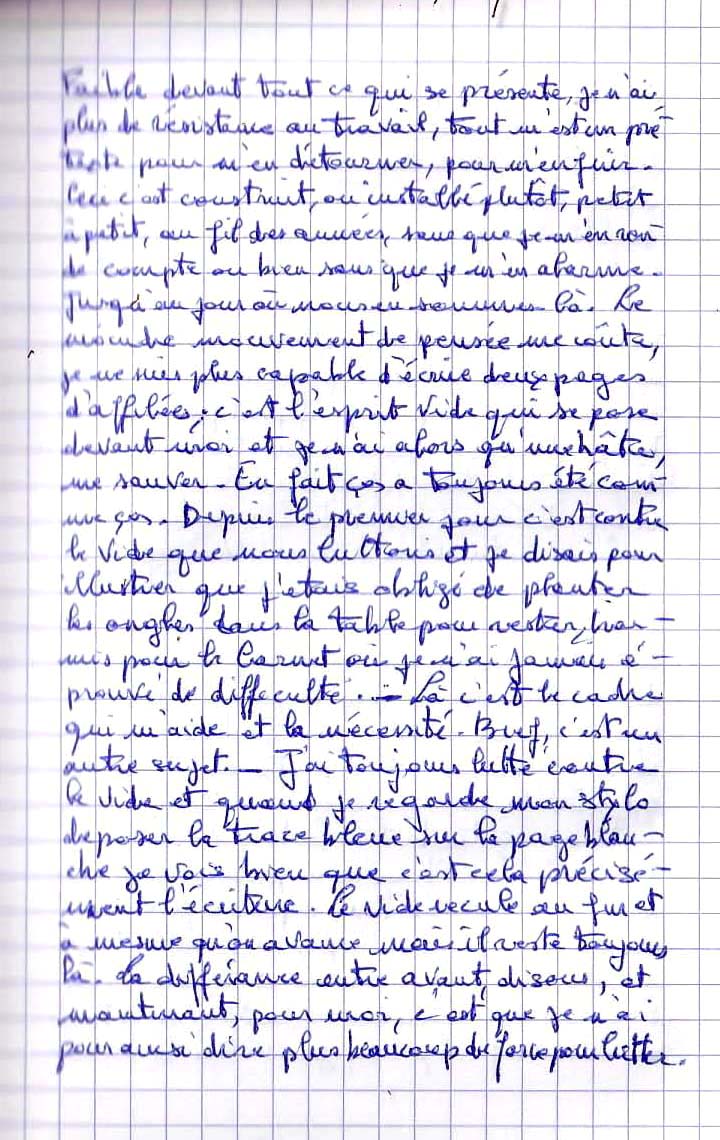 Faible devant tout ce qui se présente, je n'ai
plus de résistance au travail, tout m'est un pré-
texte pour m'en détourner, pour m'enfuir.
Ceci c'est construit, ou installé plutôt, petit
à petit, au fil des années, sans que je m'en ren
de compte ou bien sans que je m'en alarme.
Jusqu'au jour où nous en sommes là. Le
moindre mouvement de pensée me coûte,
je ne suis plus capable d'écrire deux pages
d'affilées ; c'est l'esprit vide qui se pose
devant moi et je n'ai alors qu'une hâte,
me sauver. En fait ça a toujours été com
me ça. Depuis le premier jour c'est contre
le vide que nous luttons et je disais pour
illustrer que j'étais obligé de planter
les ongles dans la table pour rester, hor-
mis pour le Carnet où je n'ai jamais é-
prouvé de difficulté. — Là c'est le cadre
qui m'aide et la nécessité. Bref, c'est un
autre sujet. — J'ai toujours lutté contre
le vide et quand je regarde mon stylo
déposer la trace bleue sur la page blan-
che je vois bien que c'est cela précisé-
ment l'écriture. Le vide recule au fur et
à mesure qu'on avance mais il reste toujours
là. La différence entre avant, disons, et
maintenant, pour moi, c'est que je n'ai
pour ainsi dire plus beaucoup de force pour lutter.